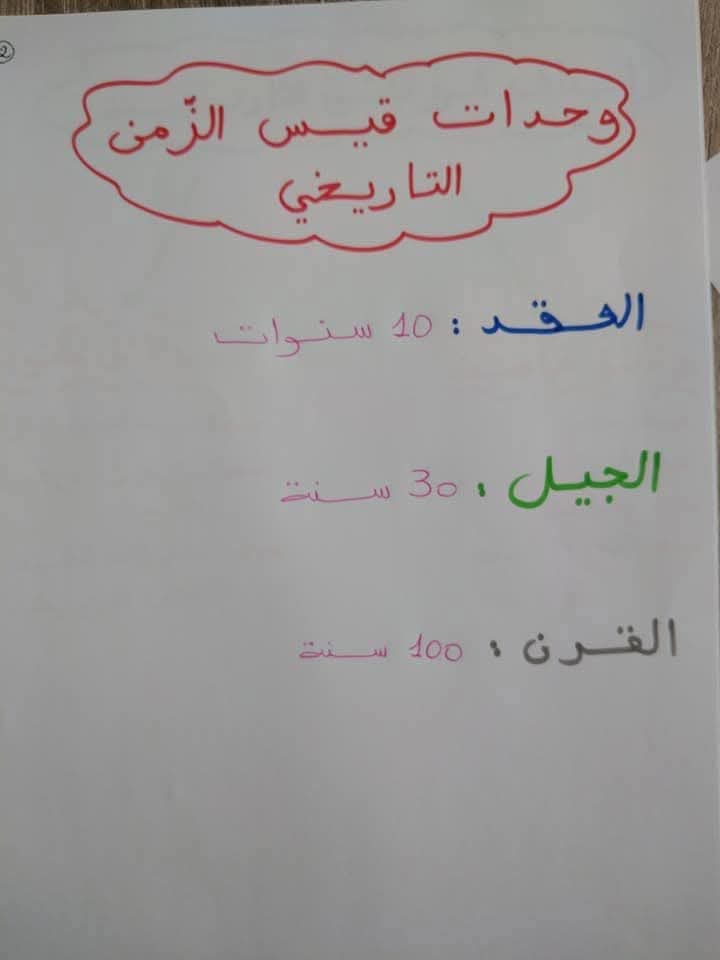 2
وحدات قيس الزّمن
التاريخي
العقد : 10 سنوات
الجيل : 30 سنة
القرن : 100 سنة